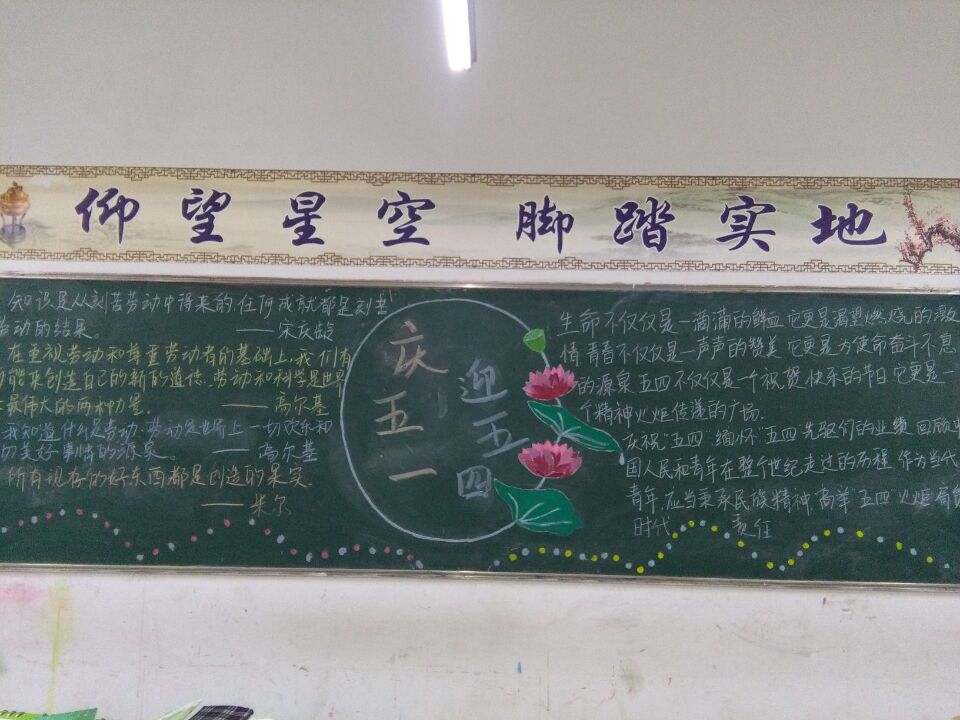 仰望星空 脚踏实地
知识是从刻苦劳动中得来的,任何成就都是刻苦
劳动的结果.
——宋庆龄
在重视劳动和尊重劳动者的基础上,我们有
可能来创造自己的新的道德.劳动和科学是世界
上最伟大的两种力量.
——高尔基
我知道什么是劳动,劳动是世界上一切欢乐和
切美好事情的源泉。
——高尔基
所有现存的好东西都是创造的果实.
——米尔
庆五一
迎五四
生命不仅仅是一滴滴的鲜血,它更是渴望燃烧的激
情 青春不仅仅是一声声的赞美,它更是为使命奋斗不息
的源泉 五四不仅仅是一个祝贺快乐的节日,它更是一
个精神火炬传递的广场.
庆祝"五四",缅怀"五四"先驱们的业绩,回顾中
国人民和青年在整个世纪走过的历程,作为当代
青年,应当秉承民族精神,高举五四火炬,肩负
时代 责任